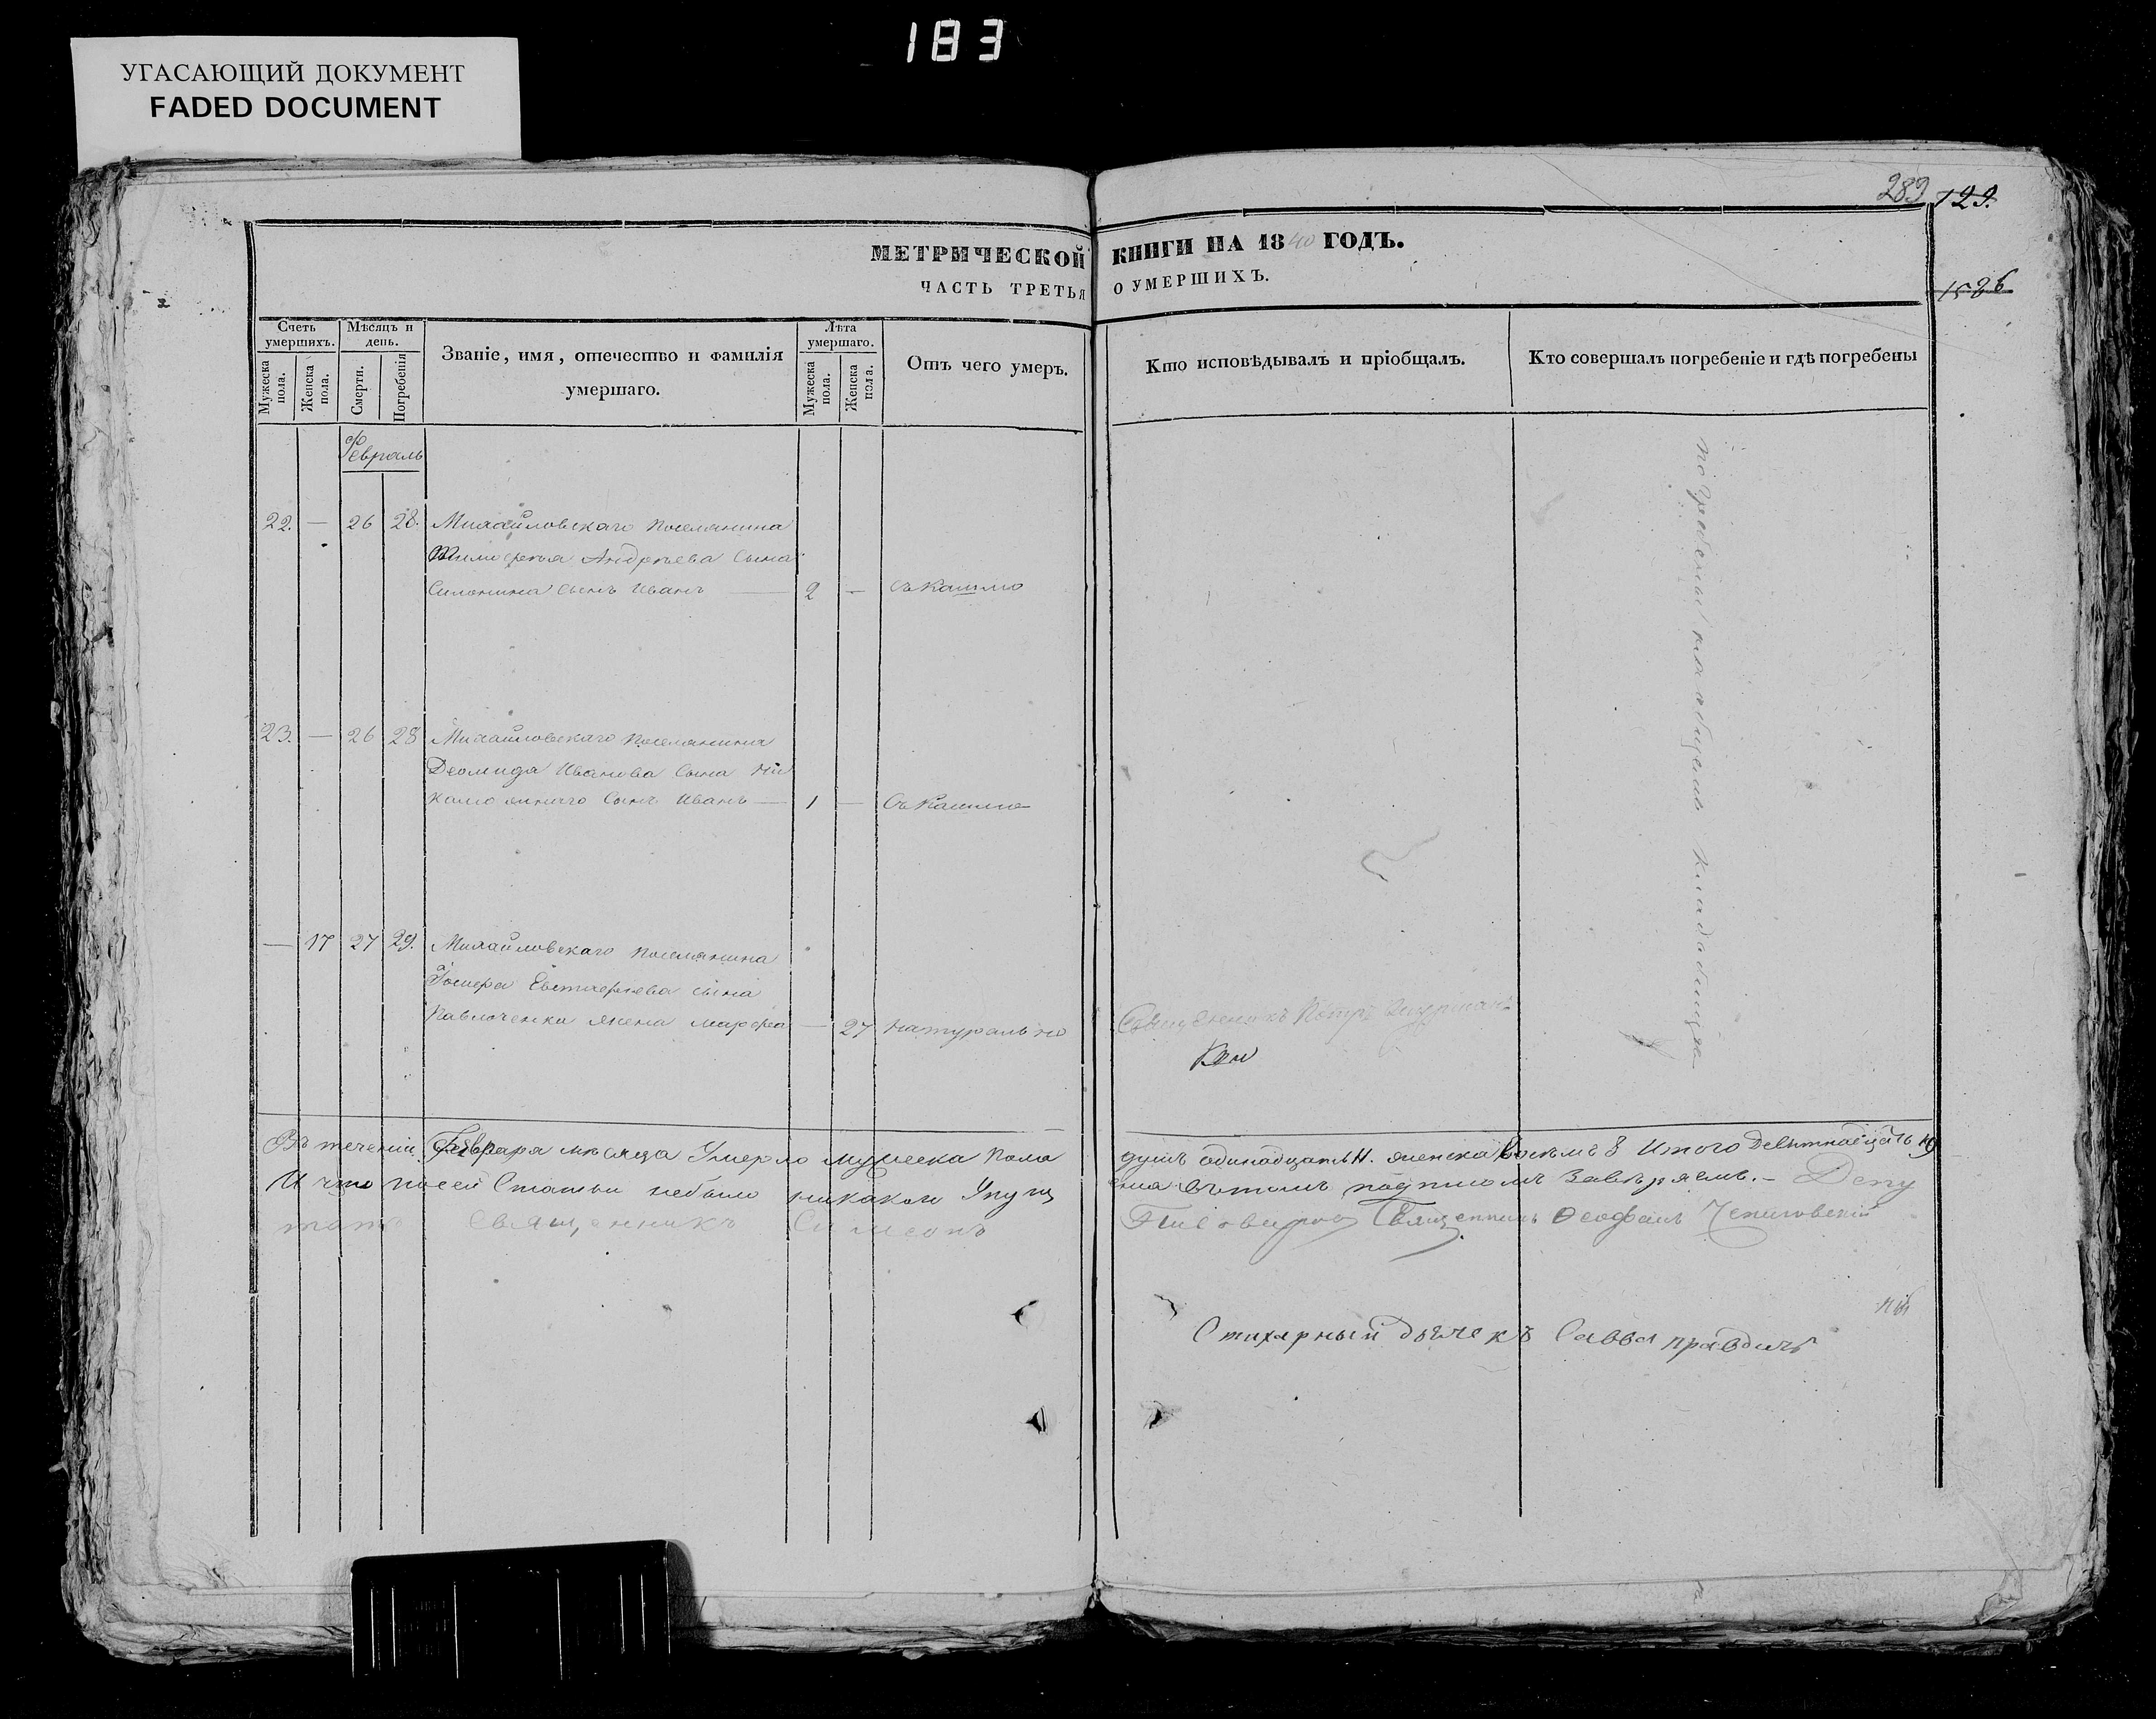 183
УГАСАЮЩИЙ ДОКУМЕНТ
FADED DOCUMENT
289 129.
1586
МЕТРИЧЕСКОЙ КНИГИ НА 1840 ГОДЪ.
ЧАСТЬ ТРЕТЬЯ О УМЕРШИХЪ.
Счетъ умершихъ.
Мужеска пола.
Женска пола.
Мѣсяцъ и день.
Смерти.
Погребенія
Званіе, имя, отечество и фамилія
умершаго.
Лѣта умершаго.
Мужеска пола.
Женска пола.
Отъ чего умеръ.
Кто исповѣдывалъ и пріобщалъ.
Кто совершалъ погребеніе и гдѣ погребены
Февраль
22. — 26 28. Михайловскаго поселянина
Тимофея Андреева сына
сынъ Иванъ — 2 — съ кашлю
23. — 26 28 Михайловскаго поселянина
Деомида Иванова сына
сынъ Иванъ — 1 — съ кашлю
— 17 27 29. Михайловскаго поселянина
сына
Павлоченка жена марфа — 27 натурально
Священникъ Петръ
погребены на общемъ кладабищѣ
Въ теченіи Февраря мѣсяца Умерло мужеска пола душъ одинадцать 11. женска восемъ 8 Итого девятнадцать 19
И что посей статьи небыло никакаго Упущенія вътомъ подписомъ завѣряемъ. — Депу
татъ Священникъ Симеонъ Священникъ Ѳеофанъ
Стихарный дьячекъ Савва правдичъ